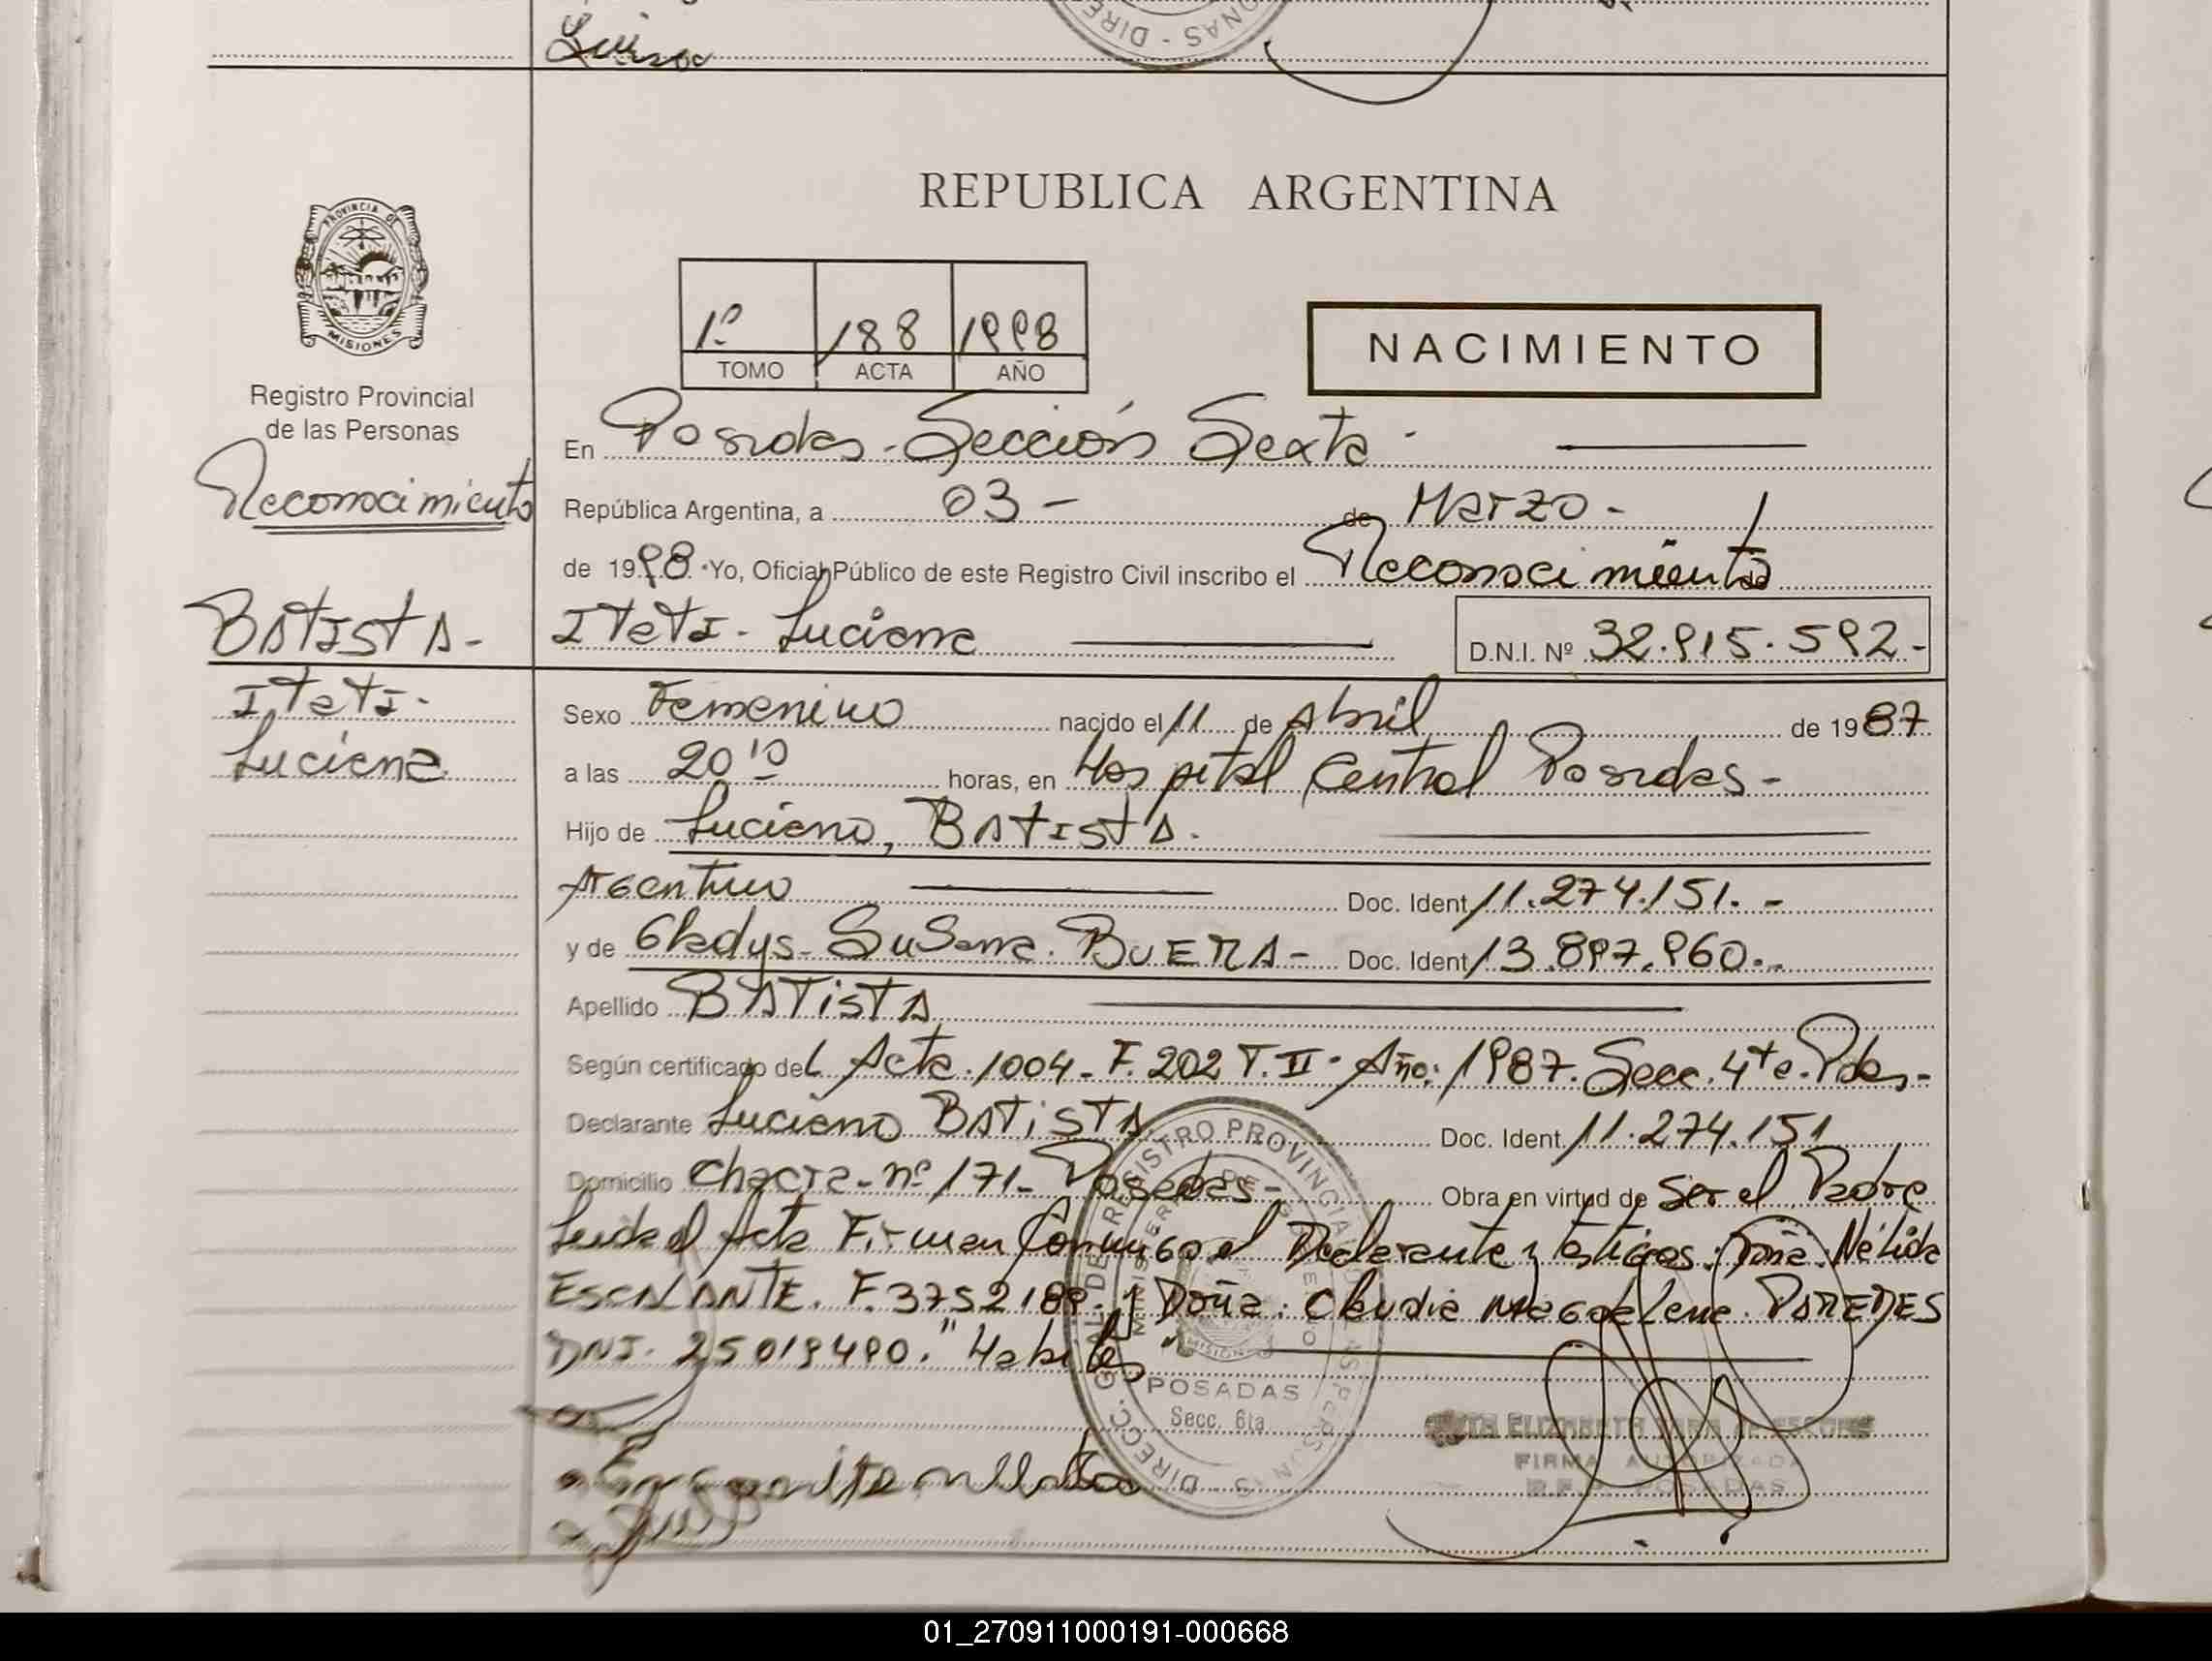 DIRE
NAS - DIREC
REPUBLICA ARGENTINA
PROVINCIA DE
MISIONES
Registro Provincial
de las Personas
1º 188 1998
TOMO ACTA AÑO
NACIMIENTO
Reconocimiento
BATISTA-
ITATI-
Luciana
En Posadas - Sección Sexta -
República Argentina, a 03 - de Marzo -
de 1998 Yo, Oficial Público de este Registro Civil inscribo el Reconocimiento de
ITATI - Luciana D.N.I. Nº 32.915.592.-
Sexo Femenino nacido el 11 de Abril de 1987
a las 20 10 horas, en Hospital Central Posadas -
Hijo de Luciano, BATISTA.
Argentino Doc. Ident 11.274.151. -
y de Gladys - Susana. BUERA - Doc. Ident 13.897.960.-
Apellido BATISTA
Según certificado del Acta. 1004 - F. 202 T. II - Año: 1987. Secc. 4ta. Pdas.-
Declarante Luciano BATISTA Doc. Ident. 11.274.151
Domicilio Chacra - nº 171 - Posadas - Obra en virtud de Ser el Padre
Leida el Acta Firman Conmigo el Declarante y testigos: Doña: Nélida
ESCALANTE. F. 3752189. y Doña: Claudia Magdalena PAREDES
DNI. 25019490. "Habiles"
DIRECC. GRAL. DEL REGISTRO PROVINCIAL DE LAS PERSONAS
MINISTERIO DE GOBIERNO
MISIONES
POSADAS
Secc. 6ta
ELIZABETH
FIRMA AUTORIZADA
R.P.P. POSADAS
01_270911000191-000668